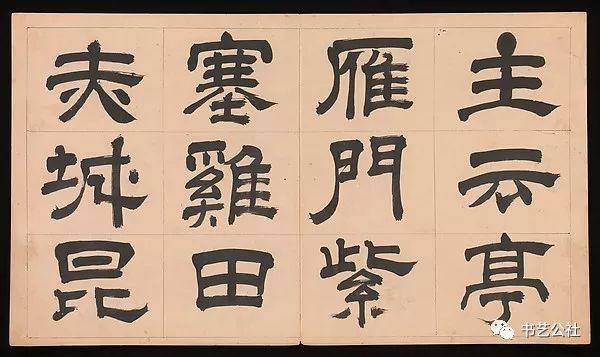 主云亭
雁門紫
塞雞田
赤城昆
书艺公社